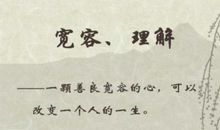 宽容、理解
——一颗善良宽容的心，可以
改变一个人的一生。